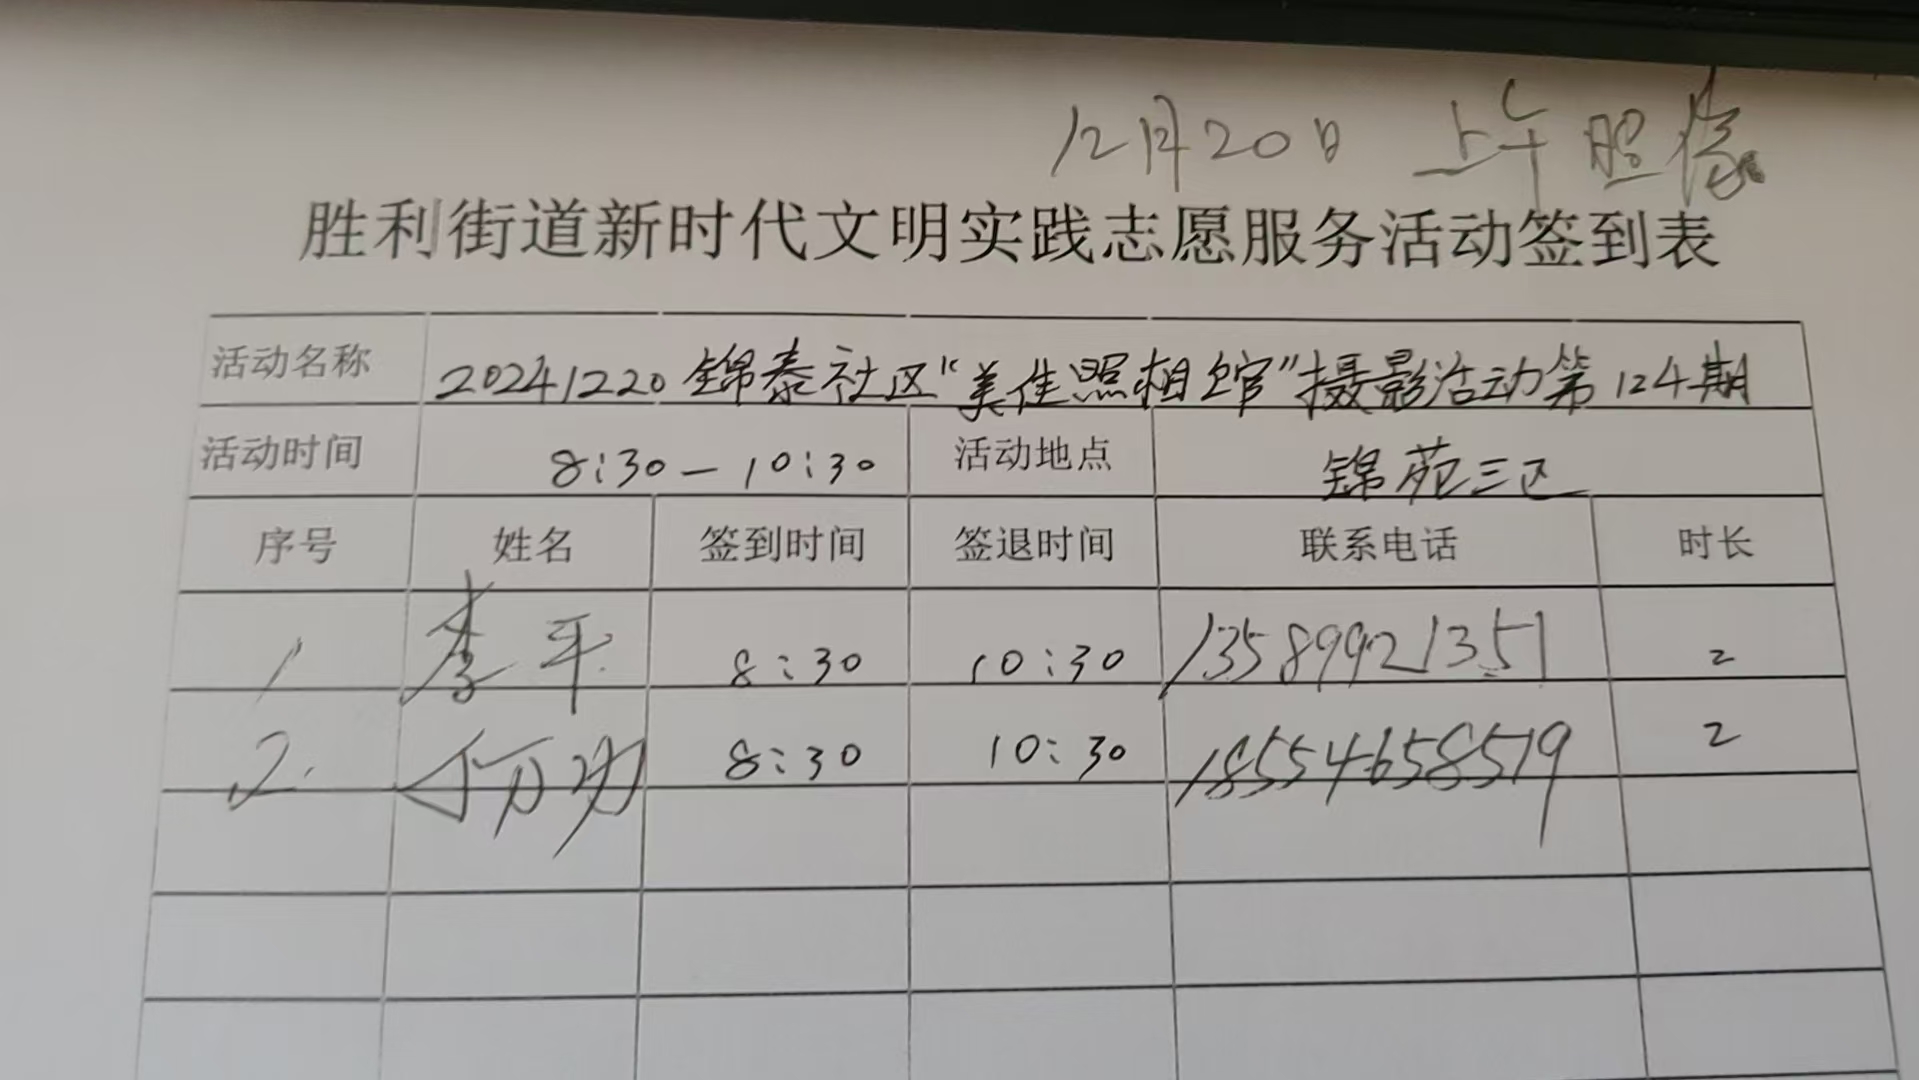 12月20日 上午 照像
胜利街道新时代文明实践志愿服务活动签到表
活动名称 20241220锦泰社区“美佳照相馆”摄影活动第124期
活动时间 8:30—10:30 活动地点 锦苑三区
序号 姓名 签到时间 签退时间 联系电话 时长
1 李平 8:30 10:30 13589921351 2
2. 8:30 10:30 18554658519 2